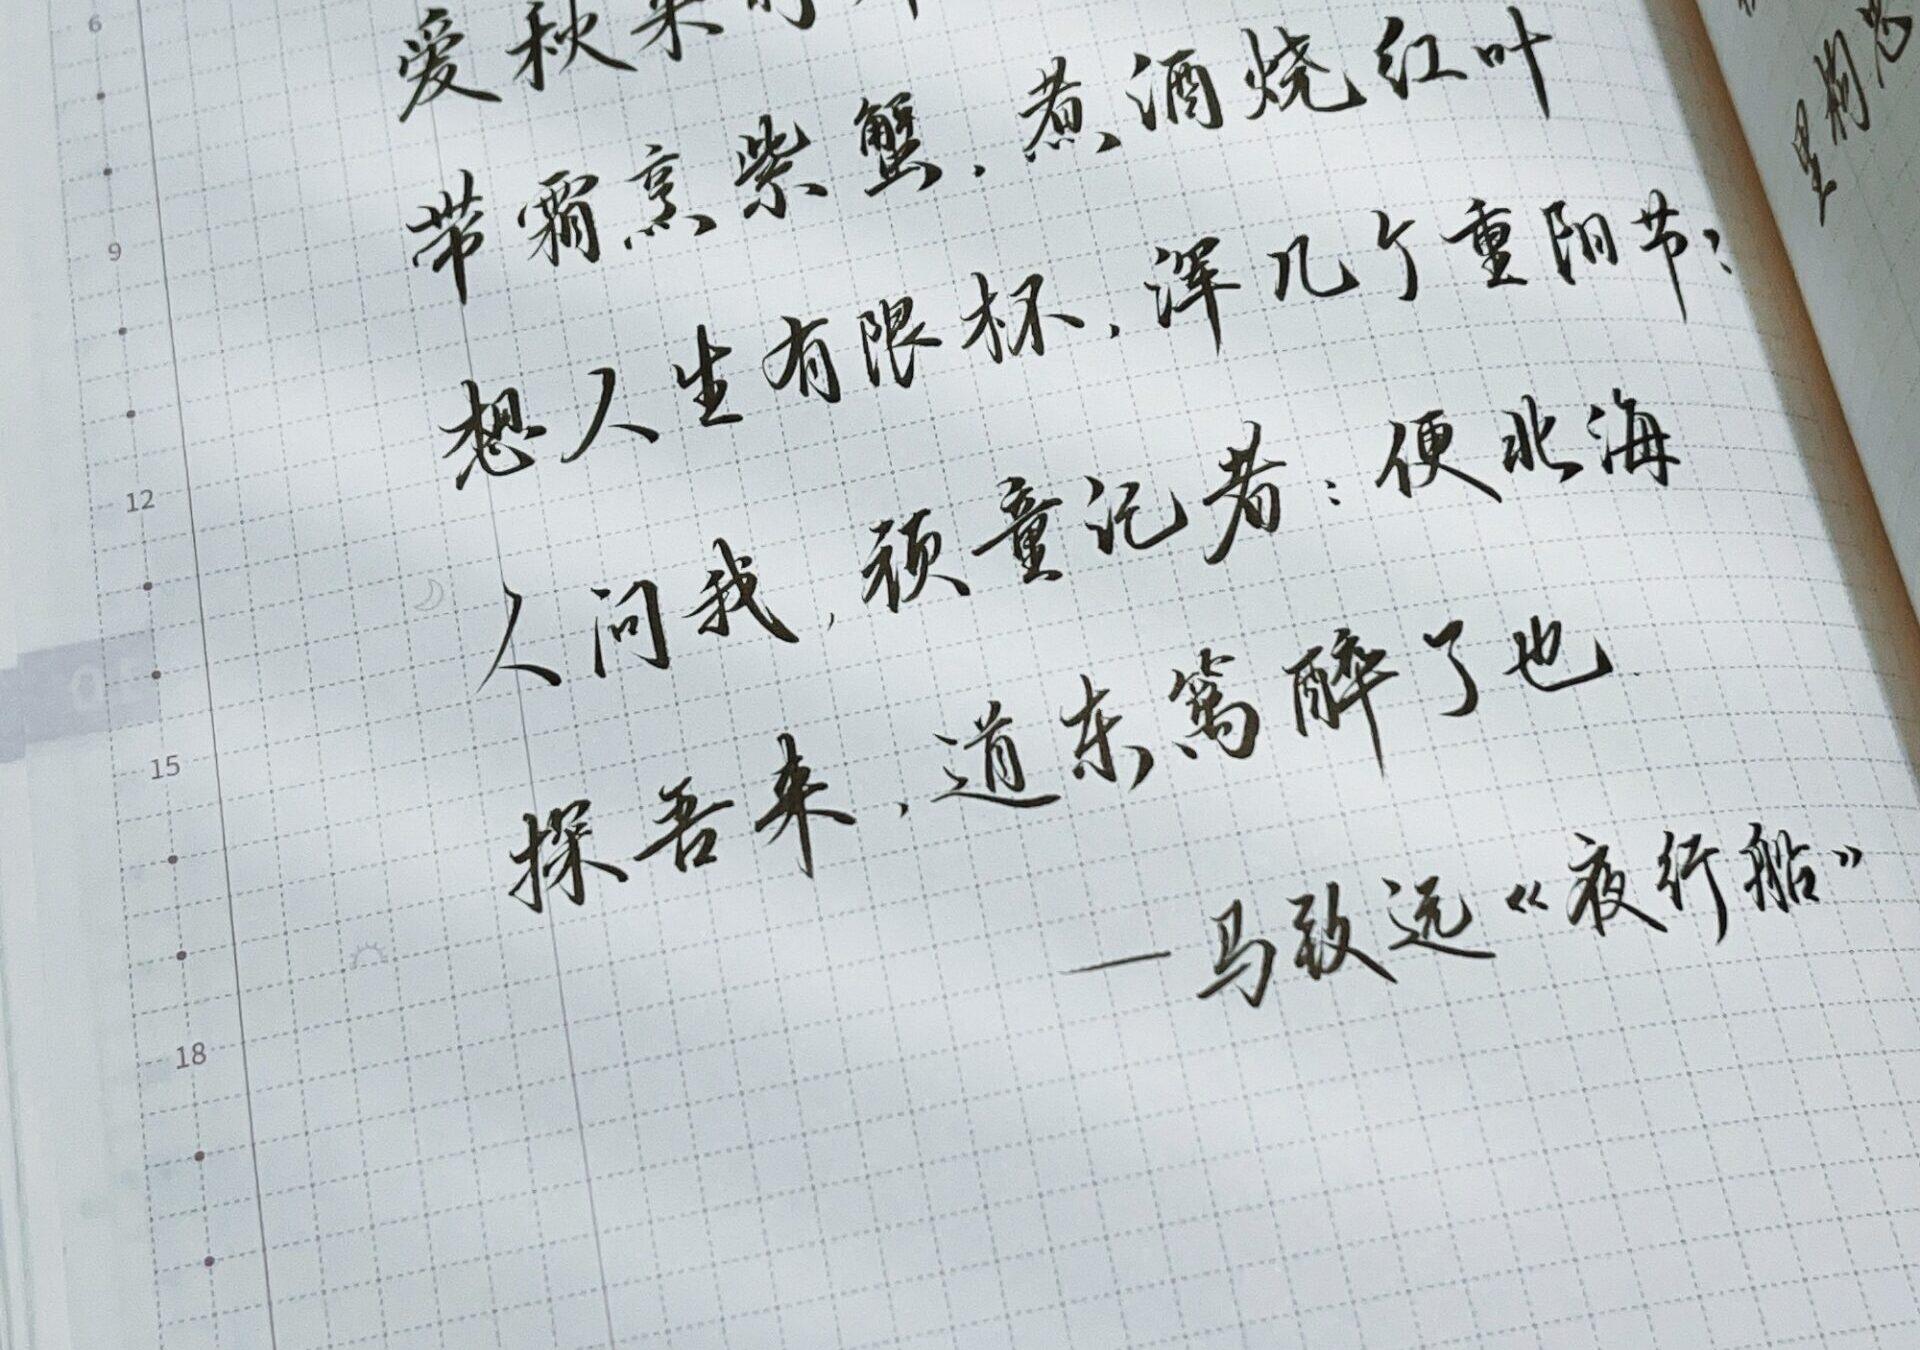 爱秋来时
带霜烹紫蟹，煮酒烧红叶
想人生有限杯，浑几个重阳节；
人问我，顽童记者：便北海
探吾来，道东篱醉了也
——马致远《夜行船》
6
9
12
15
18